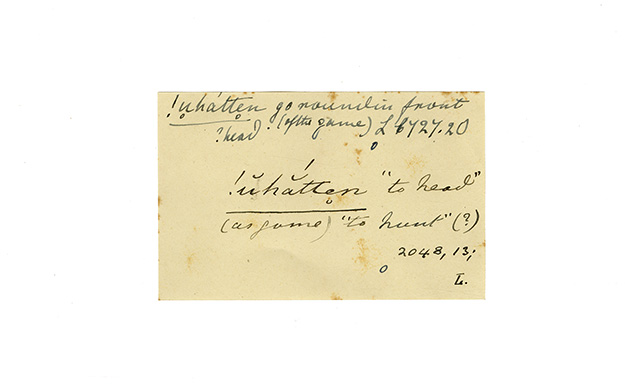 !u̥hátte̥n go round in front
?head. (of the game) L 6727.20
!ŭhắtte̥n "to head"
(as game) "to hunt" (?)
2048, 13;
L.